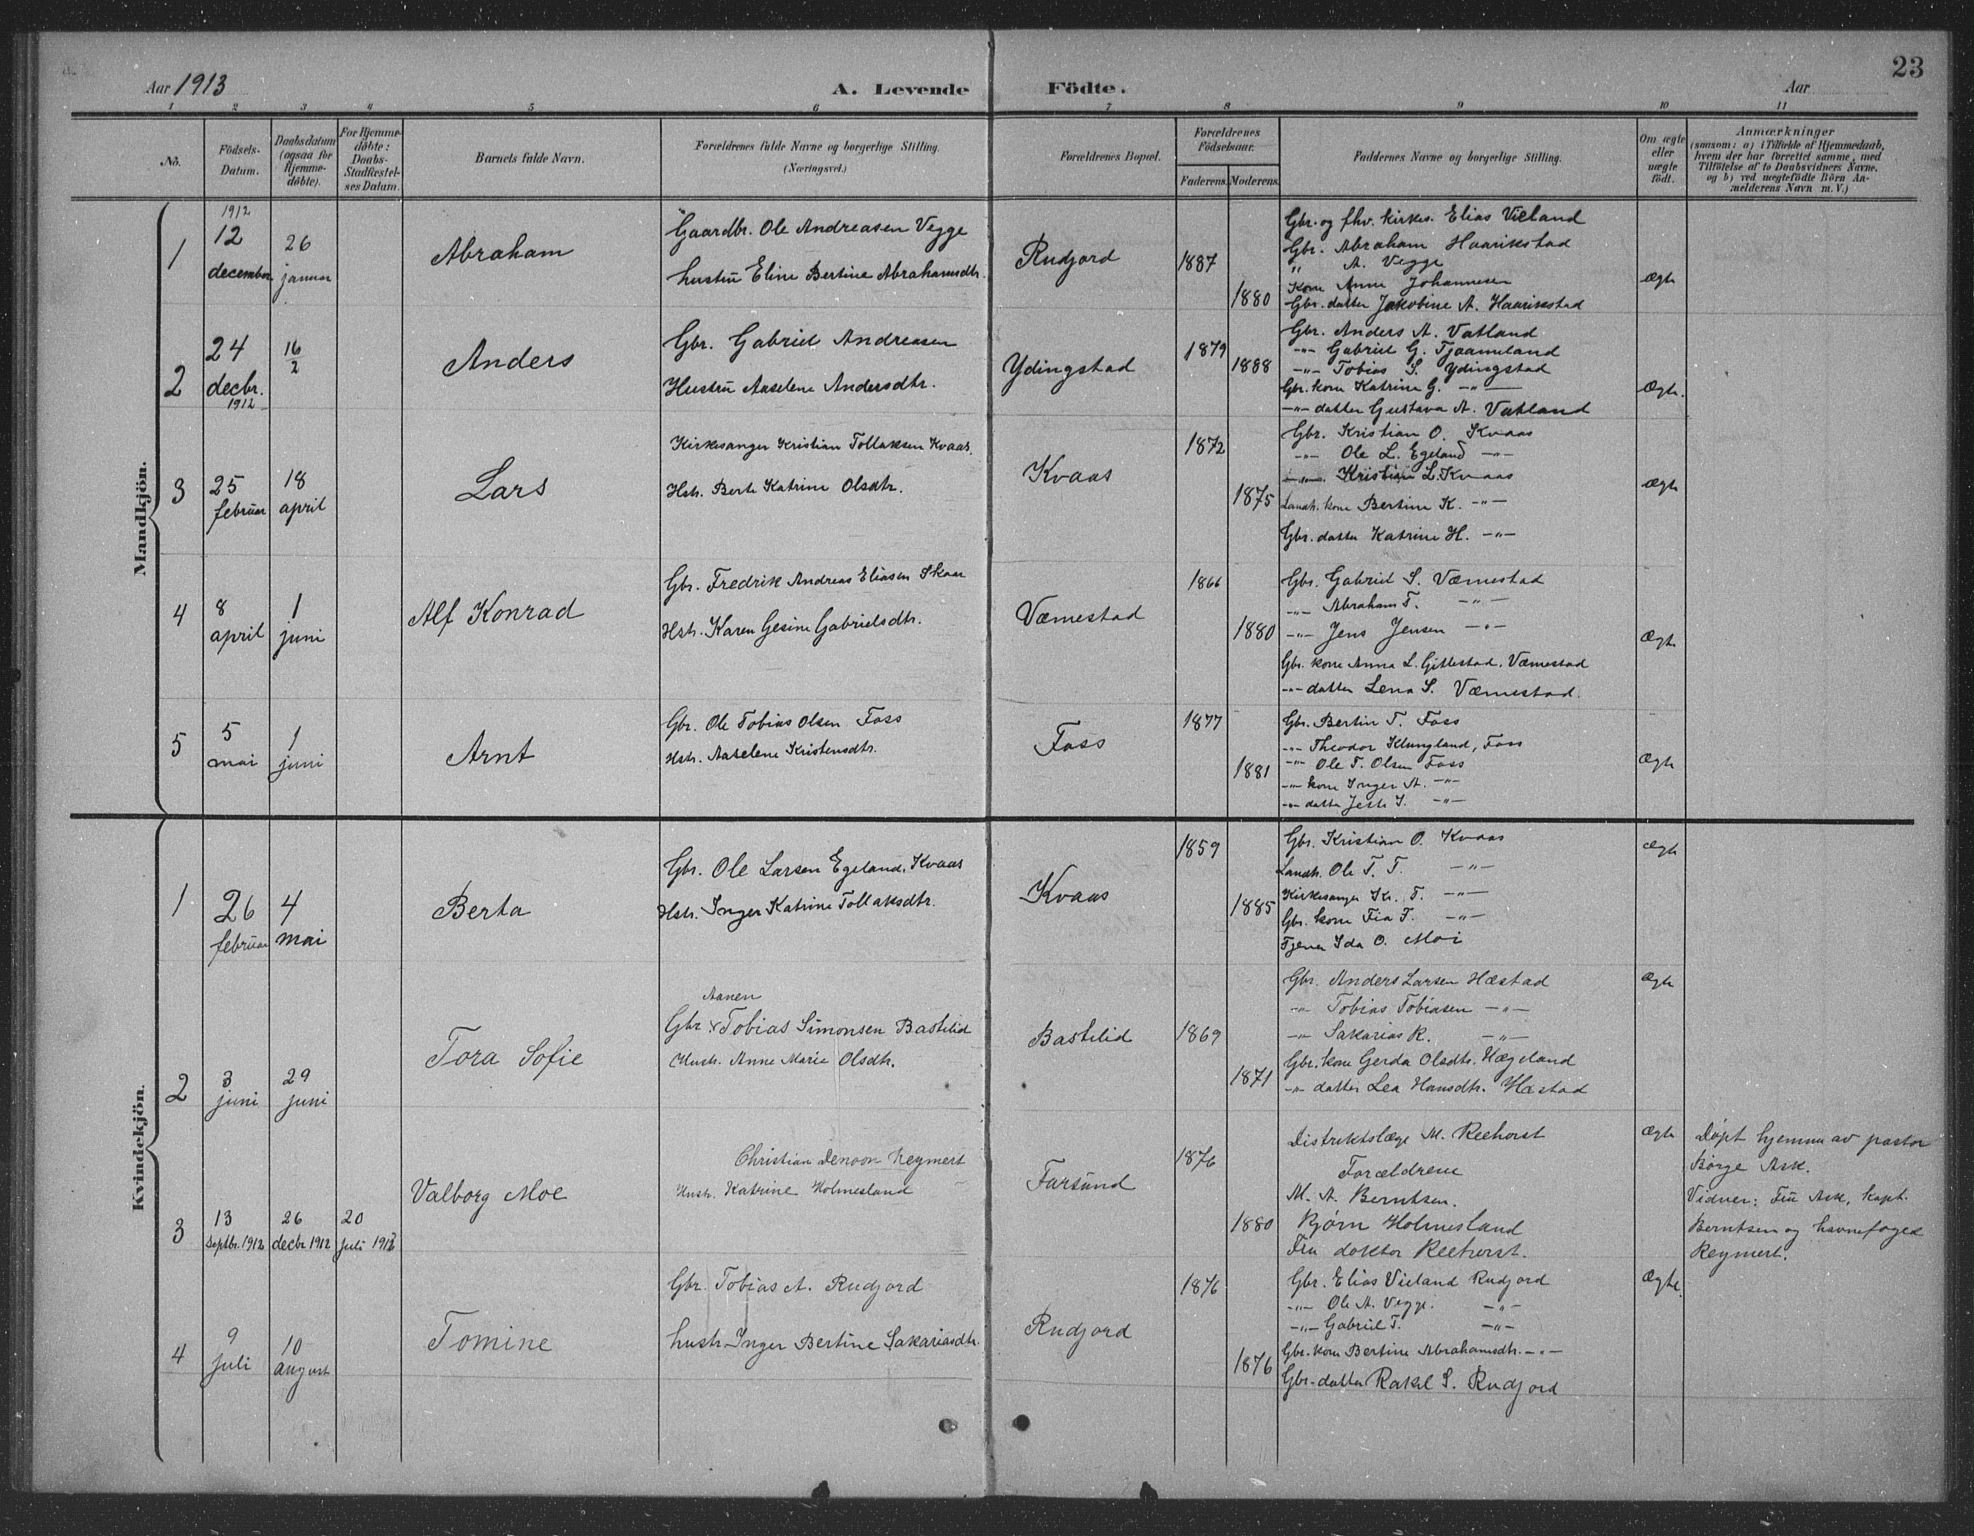 Aar 1913
A. Levende Födte.
Aar
23
1 2 3 4 5 6 7 8 9 10 11
No.
Födsels-
Datum.
Daabsdatum
(ogsaa for
Hjemme-
döbte).
For Hjemme-
döbte:
Daabs-
Stadfæstel-
ses Datum.
Barnets fulde Navn.
Forældrenes fulde Navne og borgerlige Stilling.
(Næringsvei.)
Forældrenes Bopæl.
Forældrenes
Födselsaar.
Faderens. Moderens.
Faddernes Navne og borgerlige Stilling.
Om ægte
eller
uægte
födt.
Anmærkninger
(saasom: a) i Tilfælde af Hjemmedaab,
hvem der har forrettet samme, med
Tilföielse af to Daabsvidners Navne,
og b) ved uægtefödte Börn An-
melderens Navn m. V.)
Mandkjön.
1
1912
12
december
26
januar
Abraham
Gaardbr. Ole Andreasen Vegge
hustru Eline Bertine Abrahamsdtr.
Rudjord
1887
1880
Gbr. og fhv. kirkes. Elias Vieland
Gbr. Abraham Haarikstad
" A. Vegge
Kone Anne Johannesen
Gbr. datter Jakobine A. Haarikstad
Ægte
2
24
decbr.
1912
16
2
Anders
Gbr. Gabriel Andreasen
Hustru Aaselene Andersdtr.
Ydingstad
1879
1888
Gbr. Anders A. Vatland
-"- Gabriel G. Tjaameland
-"- Tobias S. Ydingstad
Gbr. kone Katrine G. -"-
-"- datter Gustava A. Vatland
Ægte.
3
25
februar
18
april
Lars
Kirkesanger Kristian Tollaksen Kvaas.
Hstr. Berte Katrine Olsdtr.
Kvaas
1872
1875
Gbr. Kristian O. Kvaas
-"- Ole L. Egeland -"-
Kristian L. Kvaas
Landh. kone Bertine K. -"-
Gbr. datter Katrine H. -"-
Ægte
4
8
april
1
juni
Alf Konrad
Gbr. Fredrik Andreas Eliasen Skaar
Hstr. Karen Gesine Gabrielsdtr.
Væmestad
1866
1880
Gbr. Gabriel S. Væmestad
-"- Abraham T. -"-
-"- Jens Jensen -"-
Gbr. kone Anna L. Gitlestad, Væmestad
-"- datter Lena S. Væmestad.
Ægte
5
5
mai
1
juni
Arnt
Gbr. Ole Tobias Olsen Foss
Hstr. Aaselene Kristensdtr.
Foss
1877
1881
Gbr. Bertin T. Foss
-"- Theodor Klungland, Foss
-"- Ole T. Olsen Foss
-"- kone Inger A. -"-
-"- datter I. -"-
Ægte
Kvindekjön.
1
26
februar
4
mai
Berta
Gbr. Ole Larsen Egeland, Kvaas
Hstr. Inger Katrine Tollaksdtr.
Kvaas
1859
1885
Gbr. Kristian O. Kvaas
Landh. Ole T. T. -"-
Kirkesanger Kr. T. -"-
Gbr. kone Tia T. -"-
Tjener Ida O. Moi
Ægte
2
3
juni
29
juni
Tora Sofie
Aanen
Gbr. Tobias Simonsen Bastelid
Hustr. Anne Marie Olsdtr.
Bastelid
1869
1871
Gbr. Anders Larsen Hæstad
-"- Tobias Tobiasen -"-
-"- Sakarias R. -"-
Gbr. kone Gerda Olsdtr. Hægeland
-"- datter Lea Hansdtr. Hæstad
Ægte
3
13
Septbr. 1912
26
decbr 1912
20
juli 1913
Valborg Moe
Christian Denoon Reymert
Hustr. Katrine Holmesland
Farsund
1876
1880
Distriktslæge M. Reehorst
Forældrene
M. A. Berntsen.
Bjørn Holmesland
Fru doktor Reehorst.
Ægte
Døpt hjemme av pastor
Børge Ask.
Vidner: Fru Ask, kapt.
Berntsen og havnefoged
Reymert.
4
9
juli
10
august
Tomine
Gbr. Tobias A. Rudjord
hustr. Inger Bertine Sakariasdtr.
Rudjord
1876
1876
Gbr. Elias Vieland Rudjord
-"- Ole A. Vegge. -"-
-"- Gabriel T. -"-
Gbr. kone Bertine Abrahamsdtr. -"-
Gbr. datter Rakel S. Rudjord
Ægte.